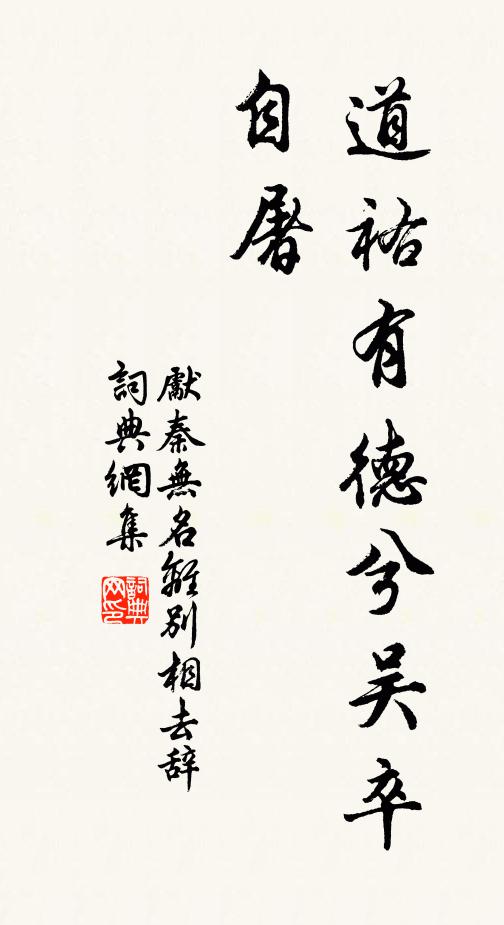 道祐有德兮吳卒
自屠
獻秦無名離別相去辞
詞典網集
詞典網印